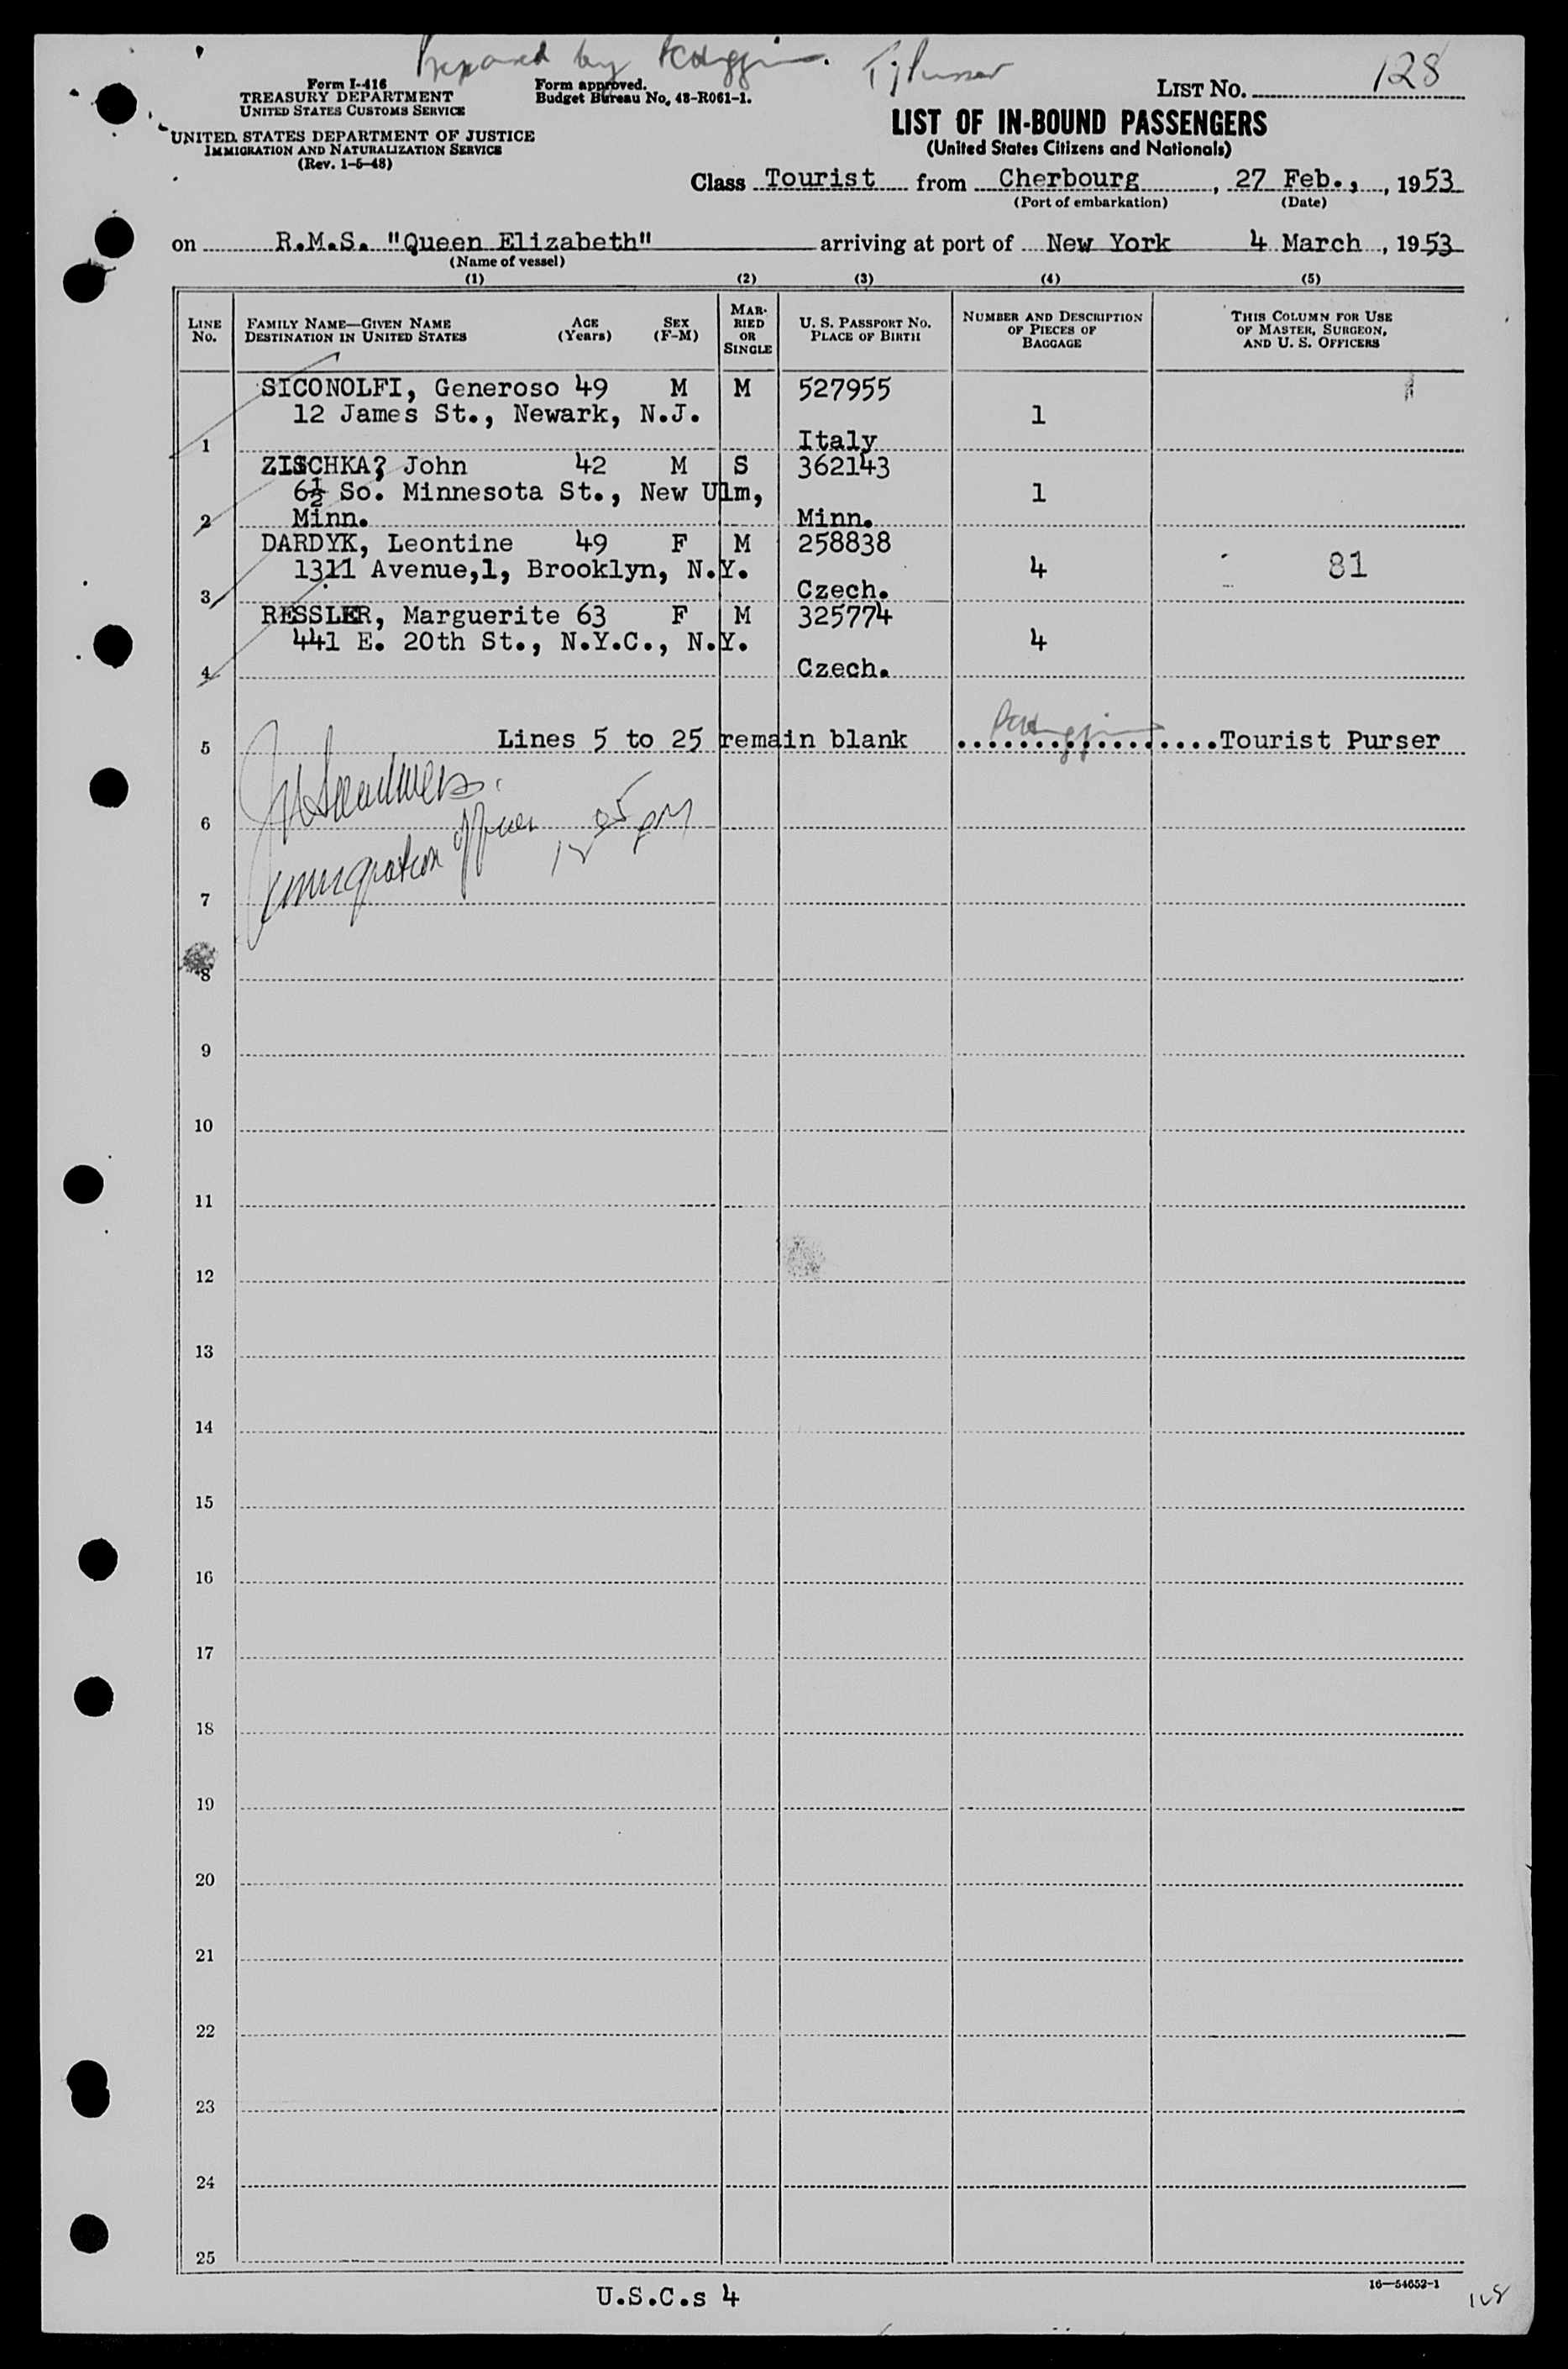 Prepared by
T/Purser
Form I-416
TREASURY DEPARTMENT
UNITED STATES CUSTOMS SERVICE
Form approved.
Budget Bureau No. 43-R061-1.
LIST NO. 128
UNITED STATES DEPARTMENT OF JUSTICE
IMMIGRATION AND NATURALIZATION SERVICE
(Rev. 1-5-48)
LIST OF IN-BOUND PASSENGERS
(United States Citizens and Nationals)
Class Tourist from Cherbourg, 27 Feb., 1953
(Port of embarkation) (Date)
on R.M.S. "Queen Elizabeth" arriving at port of New York 4 March, 1953
(Name of vessel)
(1) (2) (3) (4) (5)
LINE No. FAMILY NAME—GIVEN NAME DESTINATION IN UNITED STATES AGE (Years) SEX (F-M) MARRIED OR SINGLE U. S. PASSPORT NO. PLACE OF BIRTH NUMBER AND DESCRIPTION OF PIECES OF BAGGAGE THIS COLUMN FOR USE OF MASTER, SURGEON, AND U. S. OFFICERS
SICONOLFI, Generoso 49 M M 527955
12 James St., Newark, N.J. 1
1 Italy
ZISCHKA? John 42 M S 362143
6½ So. Minnesota St., New Ulm, 1
2 Minn. Minn.
DARDYK, Leontine 49 F M 258838
1311 Avenue,1, Brooklyn, N.Y. 4 81
3 Czech.
RESSLER, Marguerite 63 F M 325774
441 E. 20th St., N.Y.C., N.Y. 4
4 Czech.
5 Lines 5 to 25 remain blank .................Tourist Purser
6
Immigration Officer 12 05 PM
7
8
9
10
11
12
13
14
15
16
17
18
19
20
21
22
23
24
25
U.S.C.s 4
16—54652-1
128